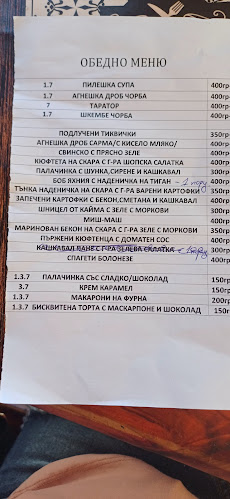 ОБЕДНО МЕНЮ
1.7 ПИЛЕШКА СУПА 400гр
1.7 АГНЕШКА ДРОБ ЧОРБА 400гр
7 ТАРАТОР 400гр
1.7 ШКЕМБЕ ЧОРБА 400гр
ПОДЛУЧЕНИ ТИКВИЧКИ 350гр
АГНЕШКА ДРОБ САРМА/С КИСЕЛО МЛЯКО/ 400гр
СВИНСКО С ПРЯСНО ЗЕЛЕ 400гр
КЮФТЕТА НА СКАРА С Г-РА ШОПСКА САЛАТКА 400гр
ПАЛАЧИНКА С ШУНКА,СИРЕНЕ И КАШКАВАЛ 300гр
БОБ ЯХНИЯ С НАДЕНИЧКА НА ТИГАН 400гр
ТЪНКА НАДЕНИЧКА НА СКАРА С Г-РА ВАРЕНИ КАРТОФКИ 350гр
ЗАПЕЧЕНИ КАРТОФКИ С БЕКОН,СМЕТАНА И КАШКАВАЛ 400гр
ШНИЦЕЛ ОТ КАЙМА С ЗЕЛЕ С МОРКОВИ 300гр
МИШ-МАШ 300гр
МАРИНОВАН БЕКОН НА СКАРА С Г-РА ЗЕЛЕ С МОРКОВИ 350гр
ПЪРЖЕНИ КЮФТЕНЦА С ДОМАТЕН СОС 400гр
КАШКАВАЛ ПАНЕ С Г-РА ЗЕЛЕВА САЛАТКА 300гр
СПАГЕТИ БОЛОНЕЗЕ 400гр
1.3.7 ПАЛАЧИНКА СЪС СЛАДКО/ШОКОЛАД 150гр
3.7 КРЕМ КАРАМЕЛ 150гр
1.3.7 МАКАРОНИ НА ФУРНА 200гр
1.3.7 БИСКВИТЕНА ТОРТА С МАСКАРПОНЕ И ШОКОЛАД 150гр